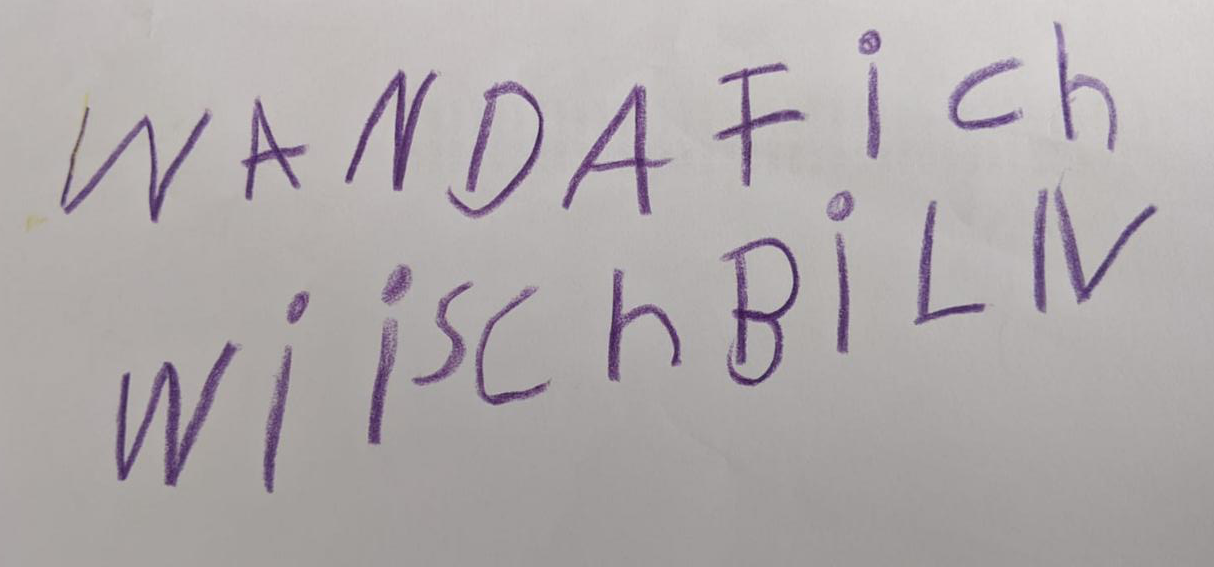 WANDAFich
WiiSChBiLN